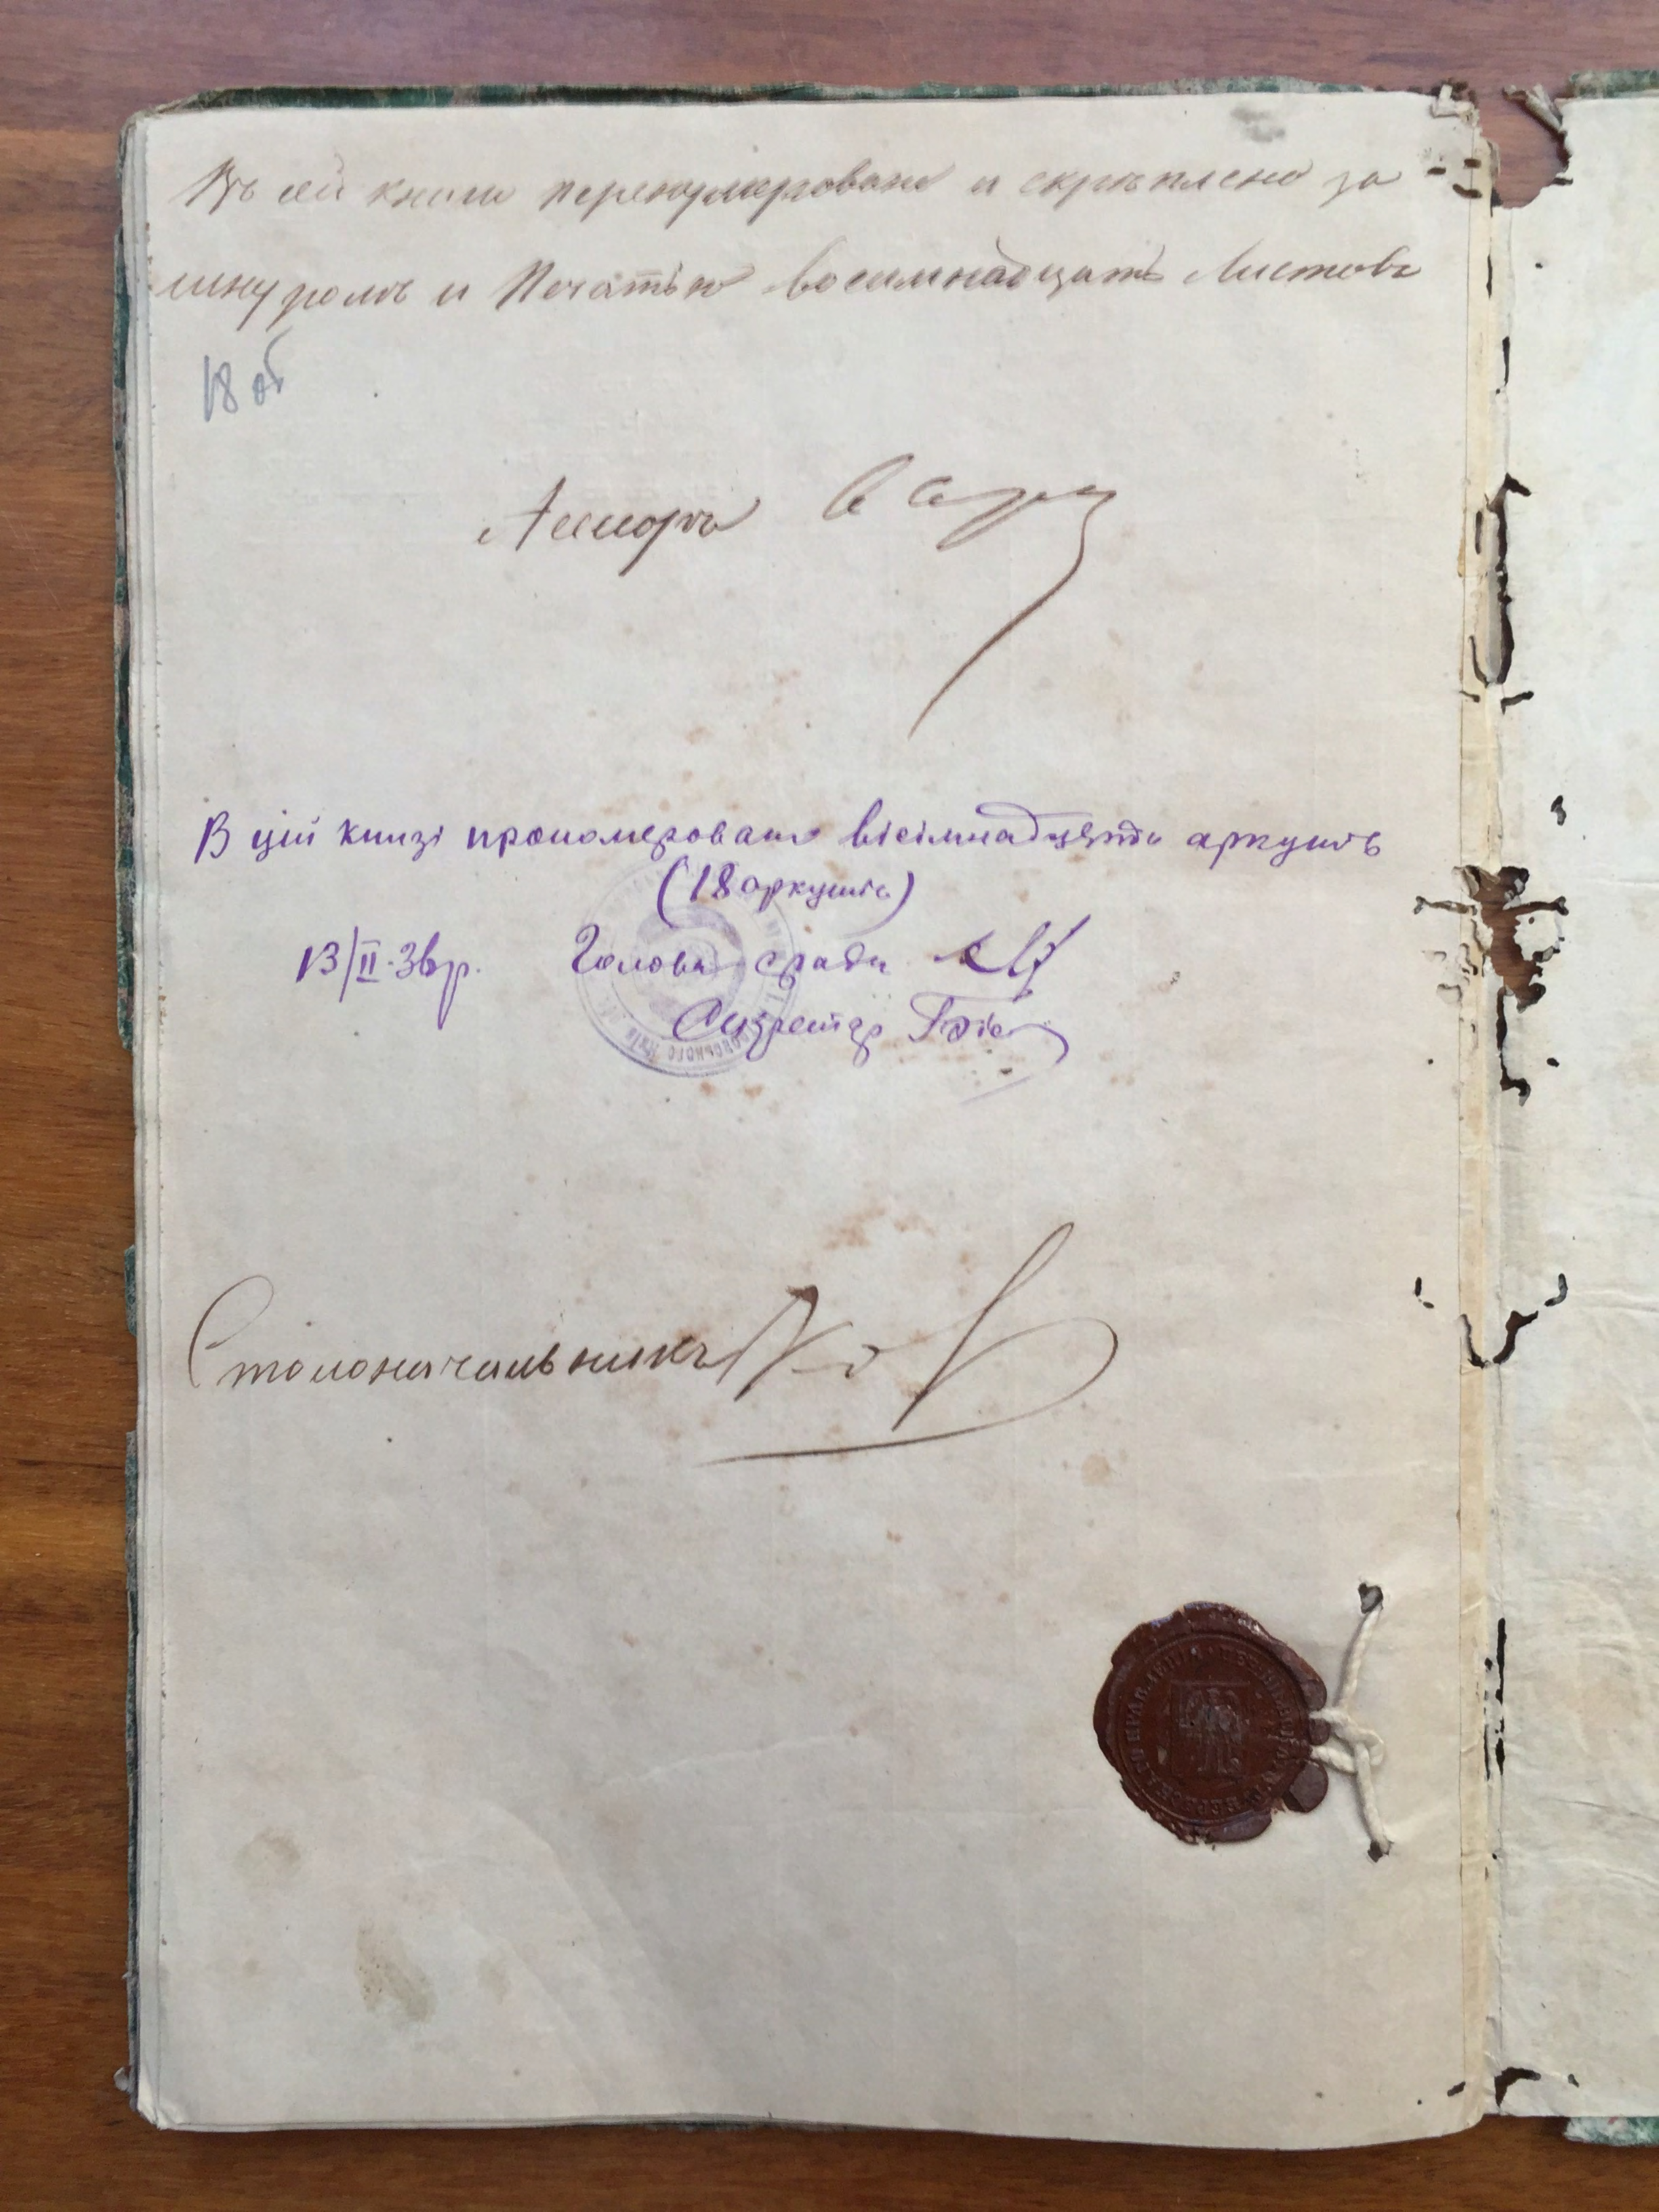 Въ сей книги перенумеровано и скреплено за
шнуромъ и Печатью восемнадцать Листовъ
18 об
Ассесоръ
В цій книзі прономеровано вісімнадцять аркушів
(18 аркушів)
13/II-36р. Голова с/ради
Секретар
Столоначальникъ